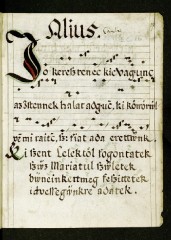 Alius.
Jo kereſztenec kic vagiunc
az Iſtennek halat adgiuc, ki
ve mi raitc, ſz: fiat ada erettűnk.
ki Szent Lelektől fogontatek
Szűz Mariatul ſzűletek
bwneinkertmeg feſzittetek
idveſſegűnkre adatek.